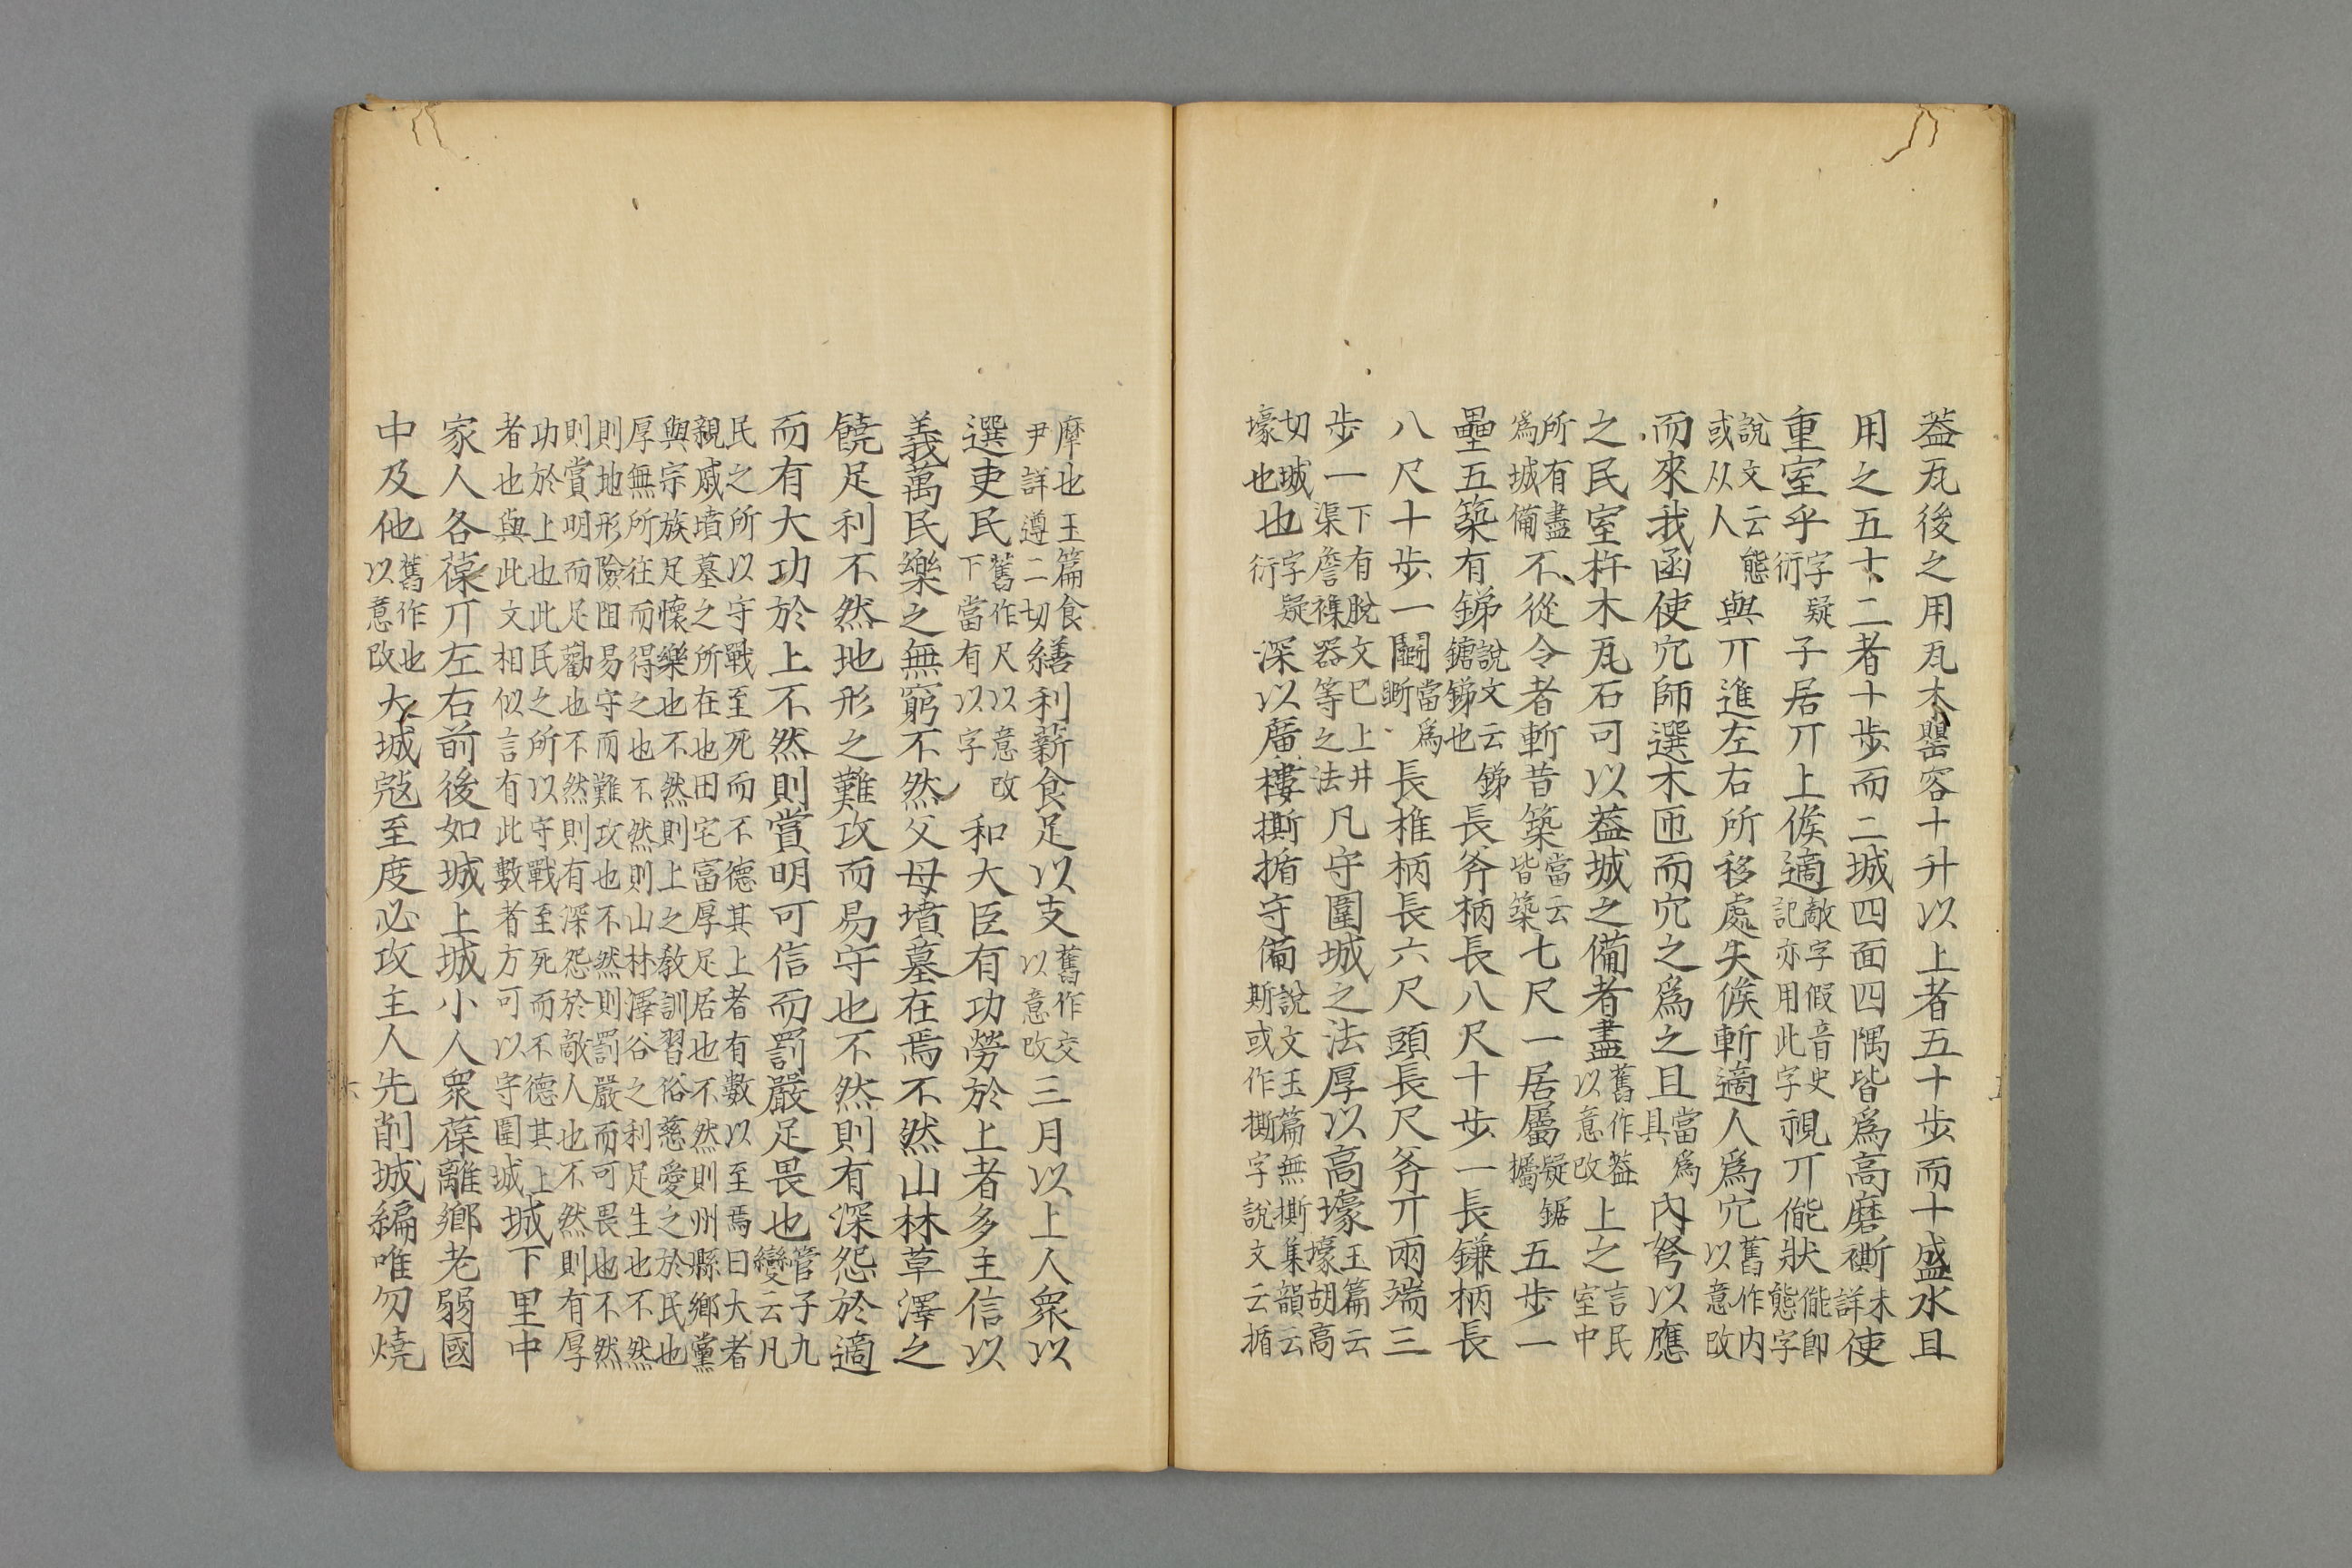 葢瓦後之用瓦木罌容十升以上者五十步而十盛水且
用之五十二者十步而二城四面四隅皆爲高磨㯕未詳使
重室乎字疑衍子居丌上候適敵字假音史記亦用此字視丌㑷狀㑷卽態字
說文云態或从人與丌進左右所移處失候斬適人爲穴舊作内以意改
而來我函使穴師選木匝而穴之爲之且當爲具內弩以應
之民室杵木瓦石可以葢城之備者盡舊作葢以意改上之言民室中
所有盡爲城備不從令者斬昔築當云皆築七尺一居屬疑鋸欘五步一
壘五築有銻說文云銻鎕銻也長斧柄長八尺十步一長鎌柄長
八尺十步一鬭當爲斲長椎柄長六尺頭長尺斧丌兩端三
步一下有脫文巳上井渠詹襍器等之法凡守圍城之法厚以高壕玉篇云壕胡高
切城壕也也字疑衍深以厚樓撕揗守備說文玉篇無撕集韻云斯或作撕字說文云揗
摩也玉篇食尹詳遵二切繕利薪食足以支舊作交以意改三月以上人衆以
選吏民舊作尺以意改下當有以字和大臣有功勞於上者多主信以
義萬民樂之無窮不然父母墳墓在焉不然山林草澤之
饒足利不然地形之難攻而易守也不然則有深怨於適
而有大功於上不然則賞明可信而罰嚴足畏也管子九變云凡
民之所以守戰至死而不德其上者有數以至焉曰大者
親戚墳墓之所在也田宅富厚足居也不然則州縣鄉黨
與宗族足懷樂也不然則上之教訓習俗慈愛之於民也
厚無所往而得之也不然則山林澤谷之利足生也不然
則地形險阻易守而難攻也不然則罰嚴而可畏也不然
則賞明而足勸也不然則有深怨於敵人也不然則有厚
功於上也此民之所以守戰至死而不德其上者也與此文相似言有此數者方可以守圍城城下里中
家人各葆丌左右前後如城上城小人衆葆離鄉老弱國
中及他舊作也以意改大城寇至度必攻主人先削城編唯勿燒